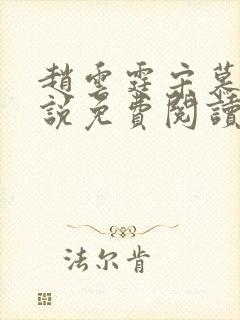 趙雲霆宋慕
說免費閱讀
法尔肯